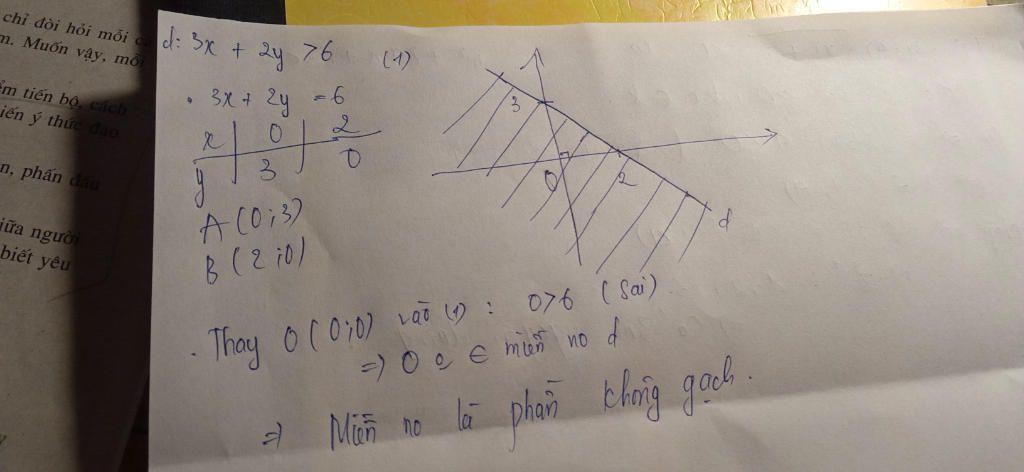 chỉ đòi hỏi mỗi
m. Muốn vậy, mỗi
ểm tiến bộ, cách
iến ý thức đạo
n, phấn đấu
iữa người
biết yêu
d: 3x + 2y > 6 (1)
• 3x + 2y = 6
x | 0 | 2
y | 3 | 0
A (0;3)
B (2;0)
3
0
2
d
• Thay O(0;0) vào (1) : 0>6 (Sai).
=> O ∈ miền no d
=> Miền no là phần không gạch.